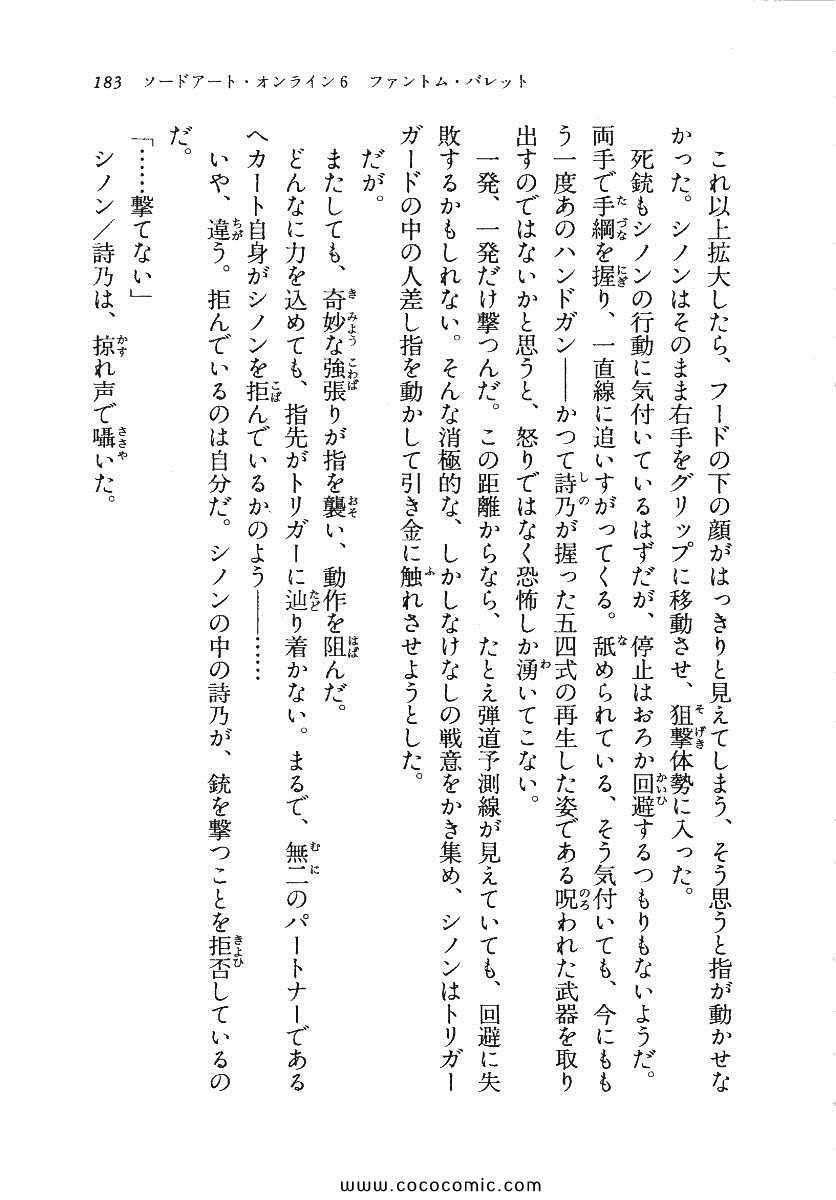 183 ソードアート・オンライン6 ファントム・バレット
これ以上拡大したら、フードの下の顔がはっきりと見えてしまう、そう思うと指が動かせな
かった。シノンはそのまま右手をグリップに移動させ、狙撃体勢に入った。
死銃もシノンの行動に気付いているはずだが、停止はおろか回避するつもりもないようだ。
両手で手綱を握り、一直線に追いすがってくる。舐められている、そう気付いても、今にもも
う一度あのハンドガン――かつて詩乃が握った五四式の再生した姿である呪われた武器を取り
出すのではないかと思うと、怒りではなく恐怖しか湧いてこない。
一発、一発だけ撃つんだ。この距離からなら、たとえ弾道予測線が見えていても、回避に失
敗するかもしれない。そんな消極的な、しかしなけなしの戦意をかき集め、シノンはトリガー
ガードの中の人差し指を動かして引き金に触れさせようとした。
だが。
またしても、奇妙な強張りが指を襲い、動作を阻んだ。
どんなに力を込めても、指先がトリガーに辿り着かない。まるで、無二のパートナーである
ヘカート自身がシノンを拒んでいるかのよう――……
いや、違う。拒んでいるのは自分だ。シノンの中の詩乃が、銃を撃つことを拒否しているの
だ。
「……撃てない」
シノン／詩乃は、掠れ声で囁いた。
www.cococomic.com